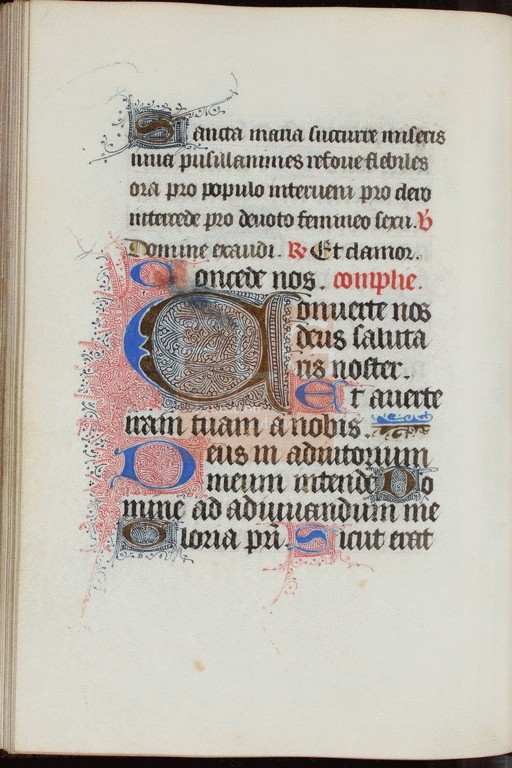 Sancta maria succurre miseris
iuua pusillanimes refoue flebiles
ora pro populo interueni pro clero
intercede pro deuoto femineo sexu. V
Domine exaudi. R Et clamor.
Concede nos. complie.
Conuerte nos
deus saluta
ris noster.
Et auerte
iram tuam a nobis.
Deus in adiutorium
meum intende Do
mine ad adiuuandum me
Gloria pri Sicut erat